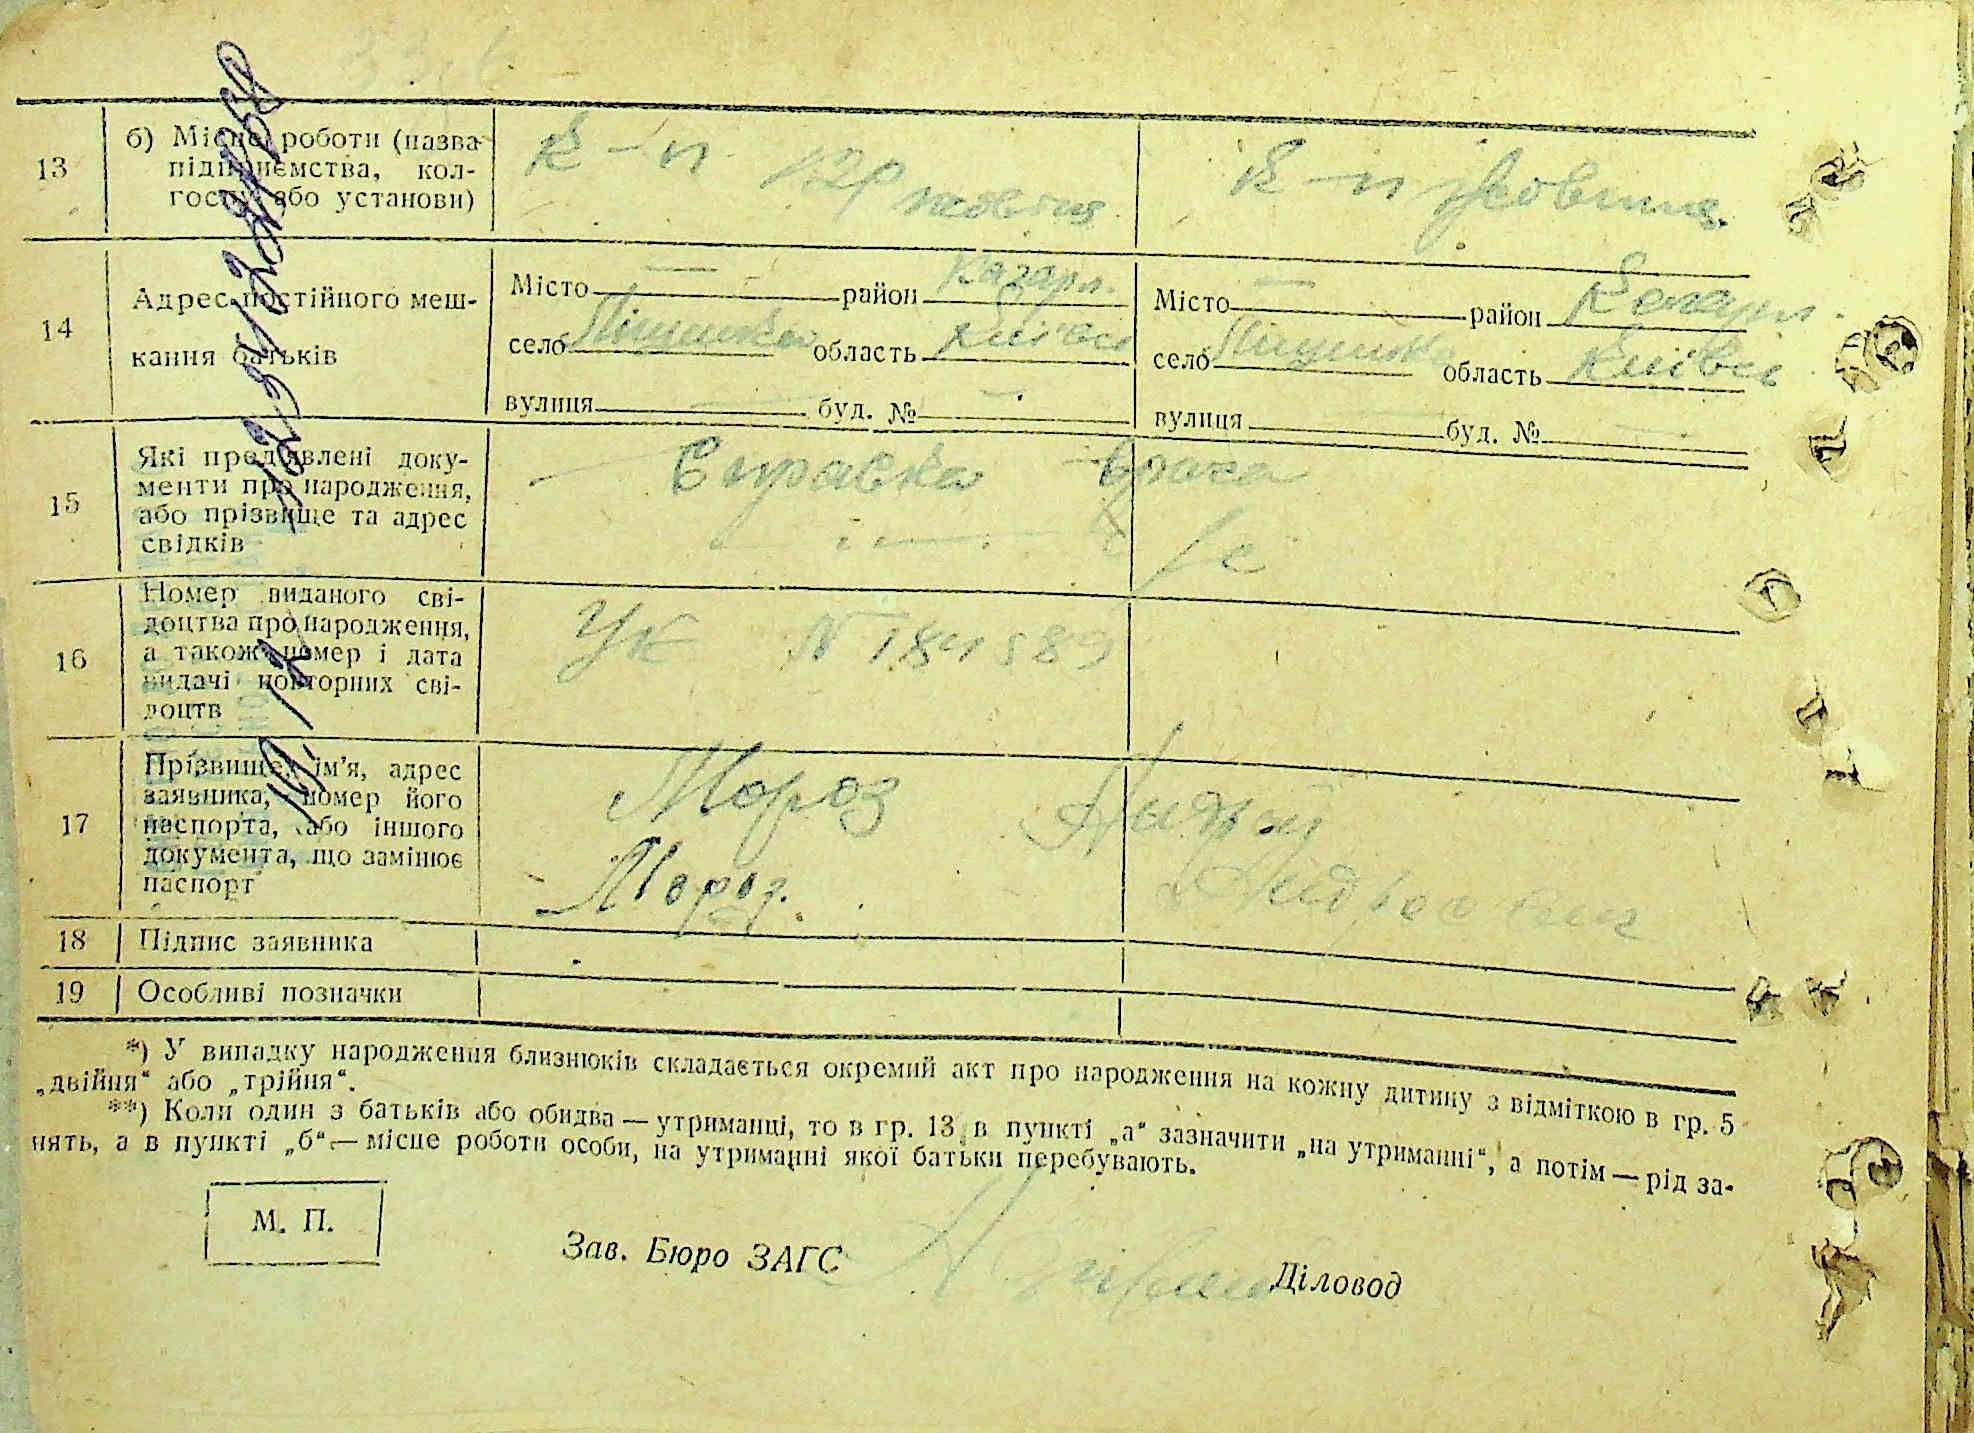 13
б) Місце роботи (назва
підприємства, кол-
госпу або установи)
К-п 12р жовтня
К-п Жовтня
14
Адрес постійного меш-
кання батьків
Місто — район Кагарл.
село область Київськ
вулиця — буд. № —
Місто — район Кагарл.
село область Київськ
вулиця — буд. № —
15
Які пред'явлені доку-
менти про народження,
або прізвище та адрес
свідків
Справка врача
16
Номер виданого сві-
доцтва про народження,
а також номер і дата
видачі повторних сві-
доцтв
УК № 184589
17
Прізвище, ім'я, адрес
заявника, номер його
паспорта, або іншого
документа, що замінює
паспорт
Мороз
Мороз.
18 Підпис заявника
19 Особливі позначки
*) У випадку народження близнюків складається окремий акт про народження на кожну дитину з відміткою в гр. 5
„двійня“ або „трійня“.
**) Коли один з батьків або обидва — утриманці, то в гр. 13 в пункті „а“ зазначити „на утриманні“, а потім — рід за-
нять, а в пункті „б“ — місце роботи особи, на утриманні якої батьки перебувають.
М. П.
Зав. Бюро ЗАГС
Діловод